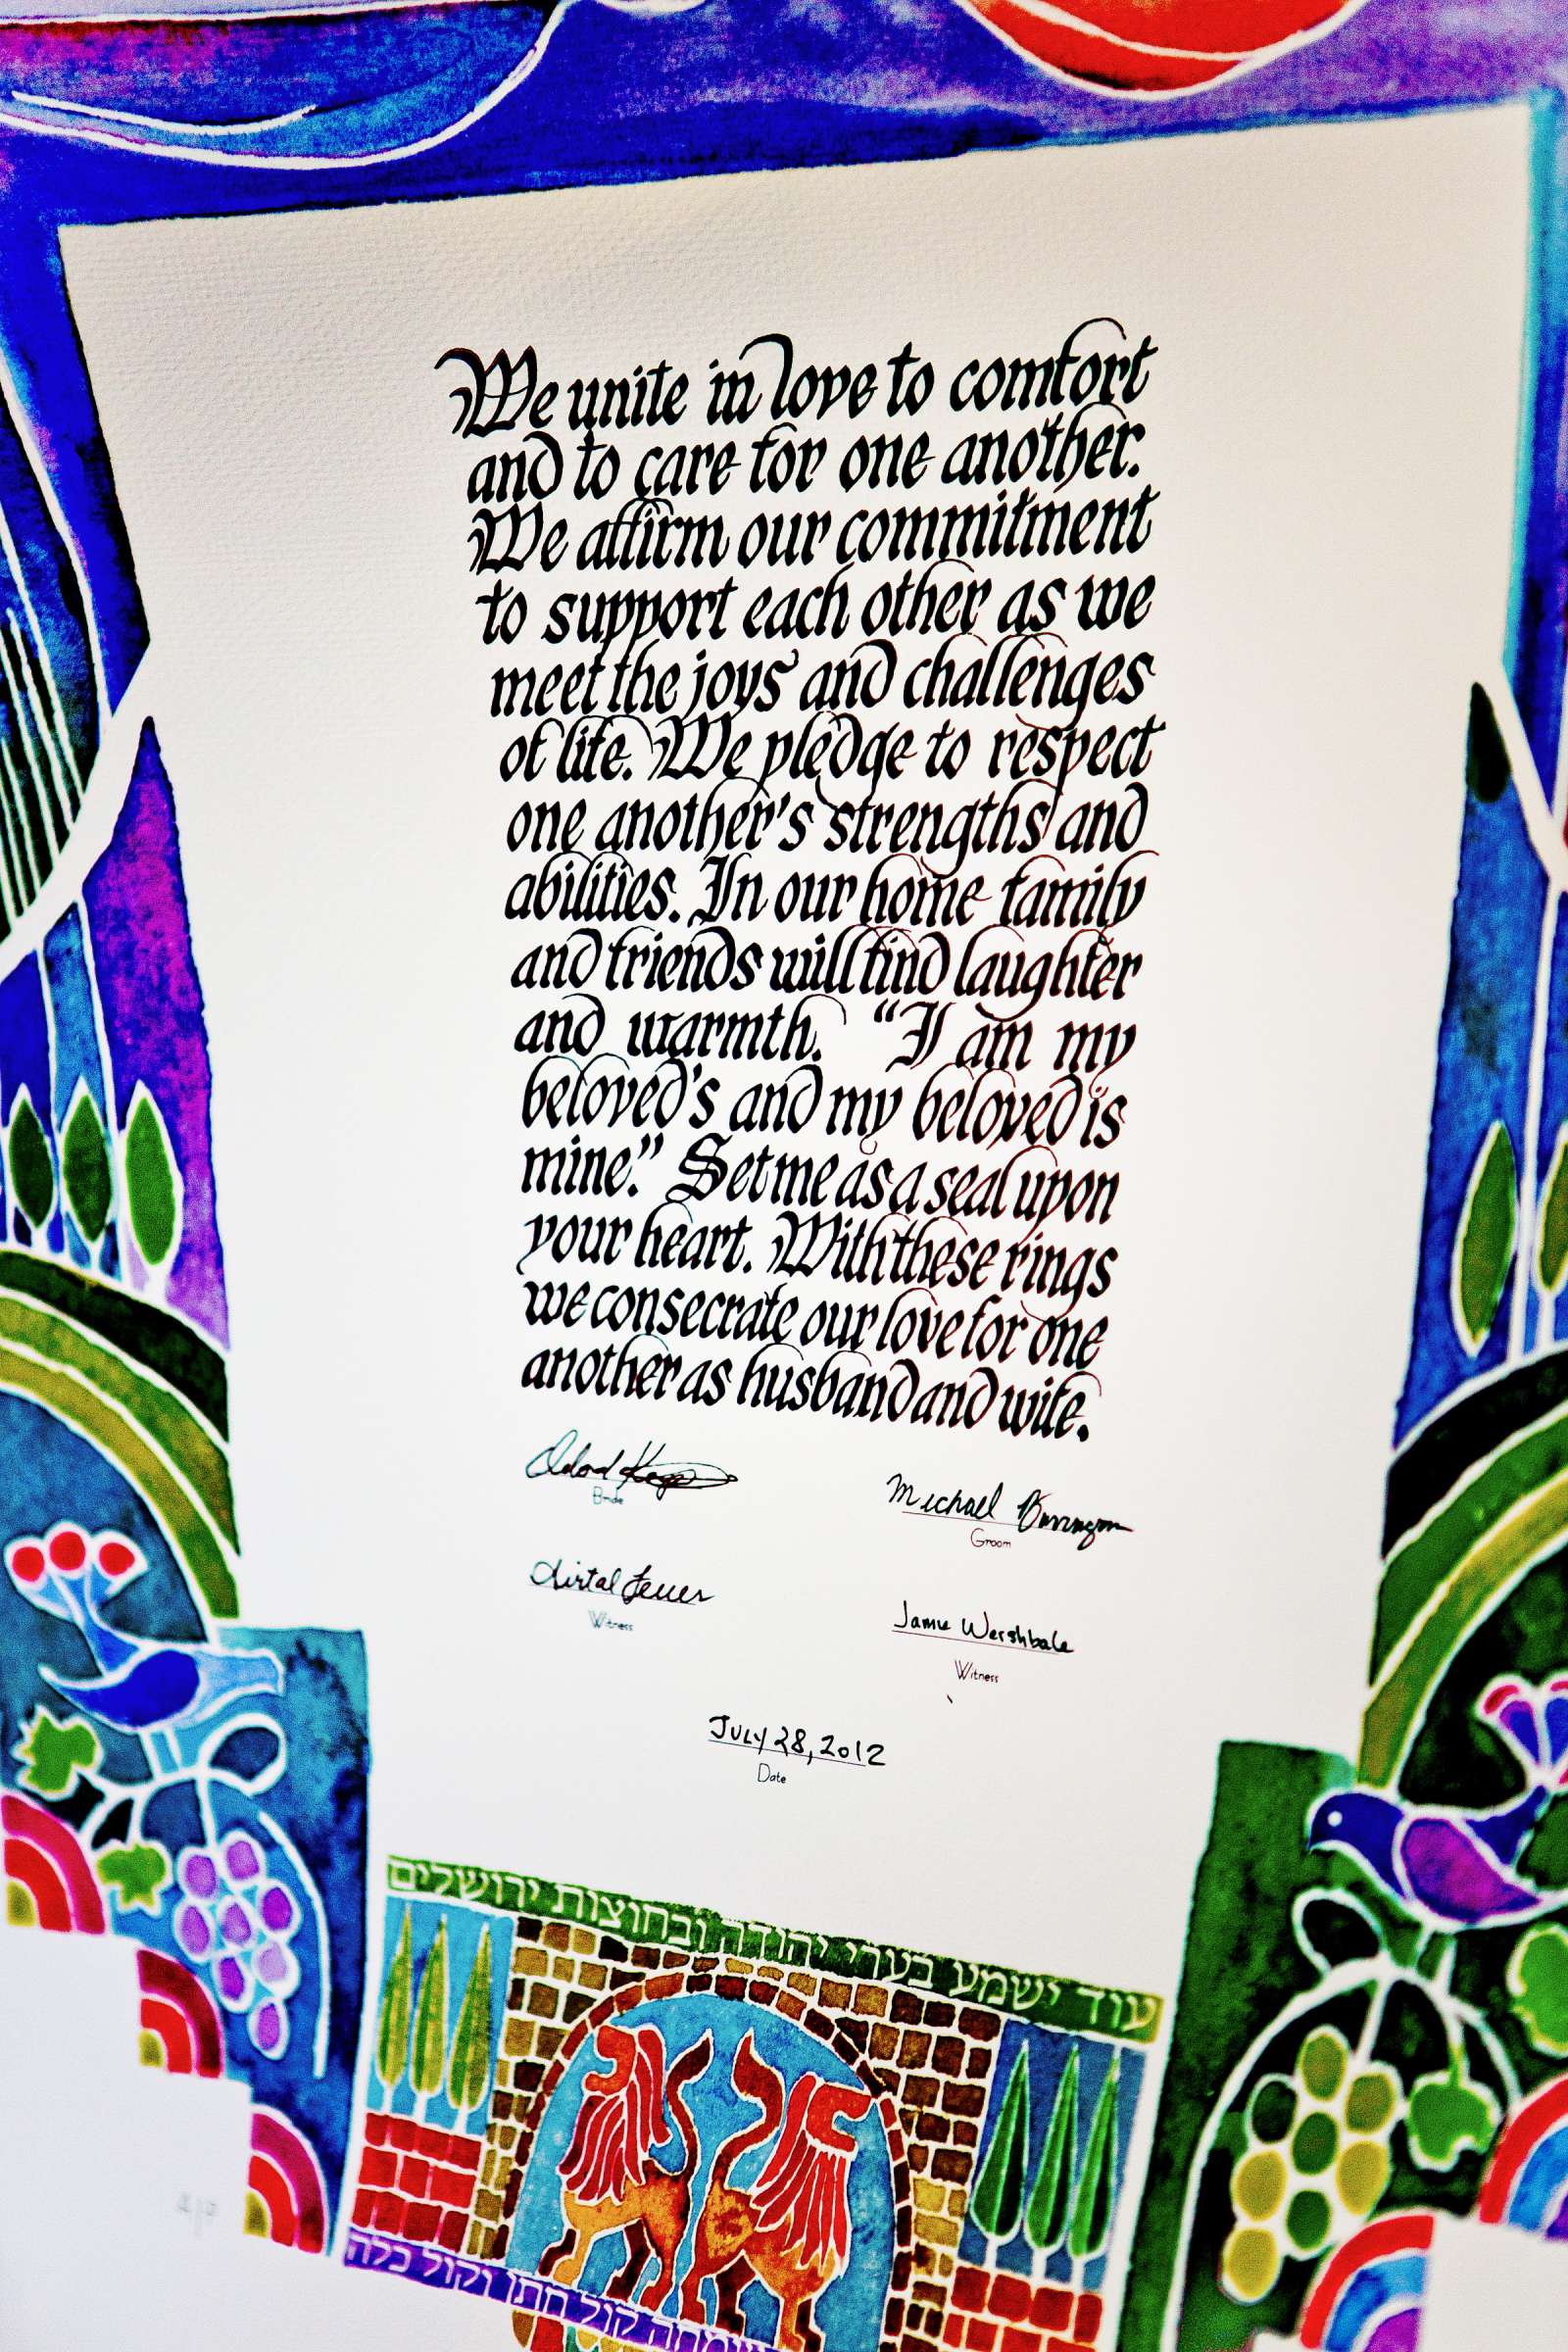 We unite in love to comfort
and to care for one another.
We affirm our commitment
to support each other as we
meet the joys and challenges
of life. We pledge to respect
one another's strengths and
abilities. In our home family
and friends will find laughter
and warmth. “I am my
beloved's and my beloved is
mine.” Set me as a seal upon
your heart. With these rings
we consecrate our love for one
another as husband and wife.
Bride
Michael
Groom
Witness
Jamie Wershbale
Witness
July 28, 2012
Date
עוד ישמע בערי יהודה ובחוצות ירושלים
קול חתן וקול כלה